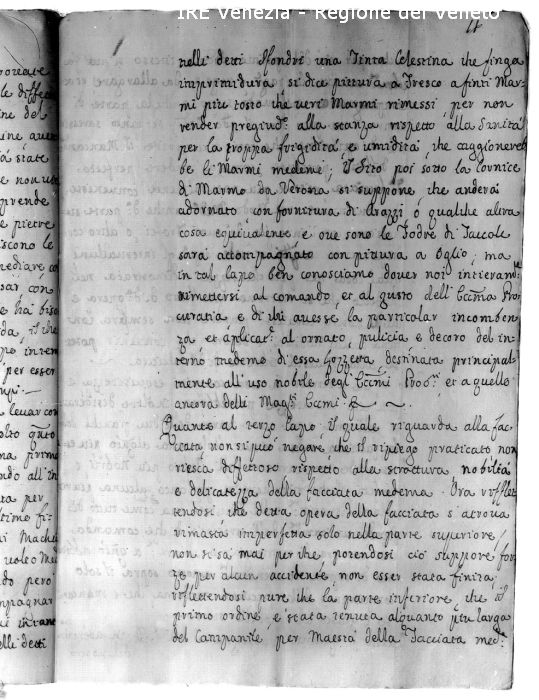 IRE Venezia - Regione del Veneto
nelli detti Sfondri una Tinta Celestina che finga
imprimidura, si dice pittura à fresco a finti Mar-
mi piu tosto che veri Marmi rimessi per non
render pregiud.º alla stanza rispetto alla Sanità
per la troppa frigidità e umidità che caggionereb
be li Marmi medemi; il Sito poi sotto la Cornice
di Marmo da Verona si suppone che anderà
adornato con fornitura di Arazzi ó qualche altra
cosa equivalente e ove sono le Fodre di Taccole
sarà accompagnato con pittura a Oglio, ma
in tal Capo ben conosciamo dover noi intieram.te
rimettersi al comando et al gusto dell' Ecc.ma Pro
curatia e di chi avesse la particolar incomben
za et aplicat.e al ornato, pulicia e decoro del in
terno medemo di essa Lozzetta destinata principal
mente all' uso nobile degl' Ecc.mi Proc.ri et a quello
ancora delli Mag.ti Ecc.mi.
Quanto al terzo Capo il quale riguarda alla fac
ciata non si può negare che il ripiego praticato non
riesca diffettoso rispetto alla struttura nobiltà
e delicatezza della facciata medema. Ora rifflet
tendosi che detta opera della facciata s'attrova
rimasta imperfetta solo nella parte superiore,
non si sà mai perche potendosi ciò suppore for
ze per alcun accidente non esser stata finita,
riflettendosi pure che la parte inferiore, che è il
primo ordine è stata tenuta alquanto più larga
del Campanile, per Maestà della Facciata med.a
le diffe
ine del
à state
e non
prende
e pietre
iscono le
mediare co
sar con
e hai biso
per esser
levar con
na prima
ndo all' in
ta per
ltimo fi-
i Mach
do però
mpagnar
elli detti